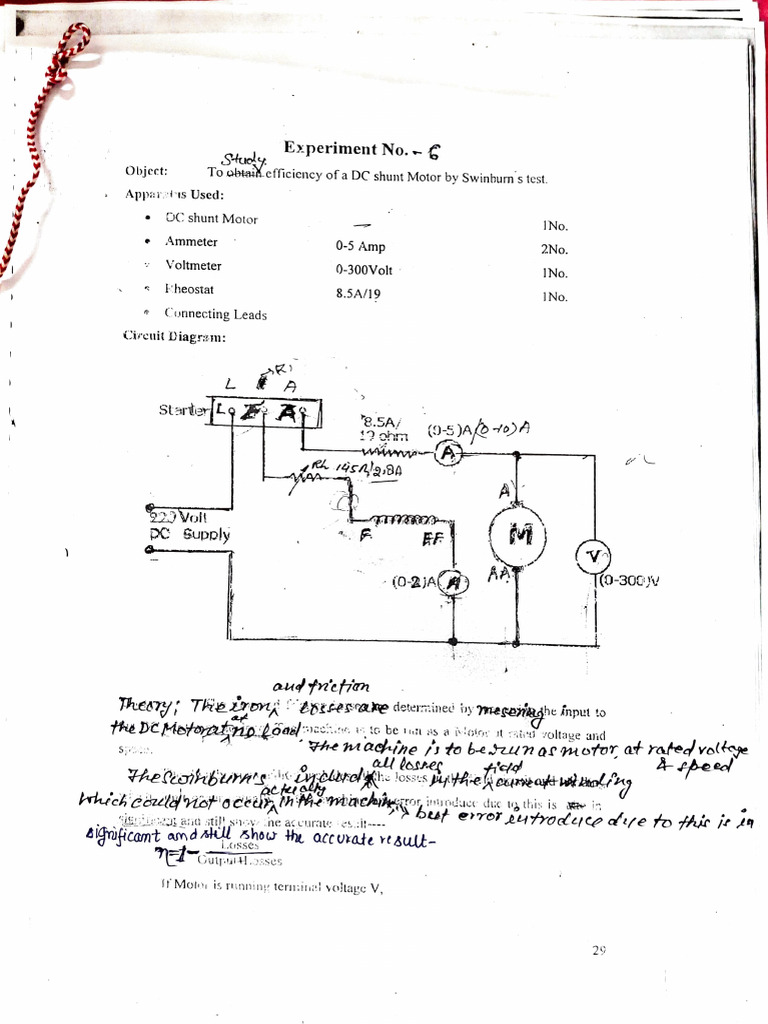 Experiment No. - 6
Study
Object: To obtain efficiency of a DC shunt Motor by Swinburn's test.
Apparatus Used:
• DC shunt Motor — 1No.
• Ammeter 0-5 Amp 2No.
• Voltmeter 0-300Volt 1No.
• Rheostat 8.5A/19 1No.
• Connecting Leads
Circuit Diagram:
L A
Starter L A
8.5A/
19 ohm
(0-5)A/(0-10)A
A
Rh 145Ω/2.8A
A
220 Volt
DC Supply
F FF
M
V
AA
(0-2)A A
(0-300)V
and friction
Theory: The iron losses are determined by mesering the input to
the DC Motor at no load machine is to be run as a Motor at rated voltage and
The machine is to be run as motor at rated voltage
& speed
all losses field
The Swinburn's includ in the current
actually
which could not occur in the machine, best error introduce due to this is in
significant and still show the accurate result-
η=1- Losses
Output+Losses
If Motor is running terminal voltage V,
29